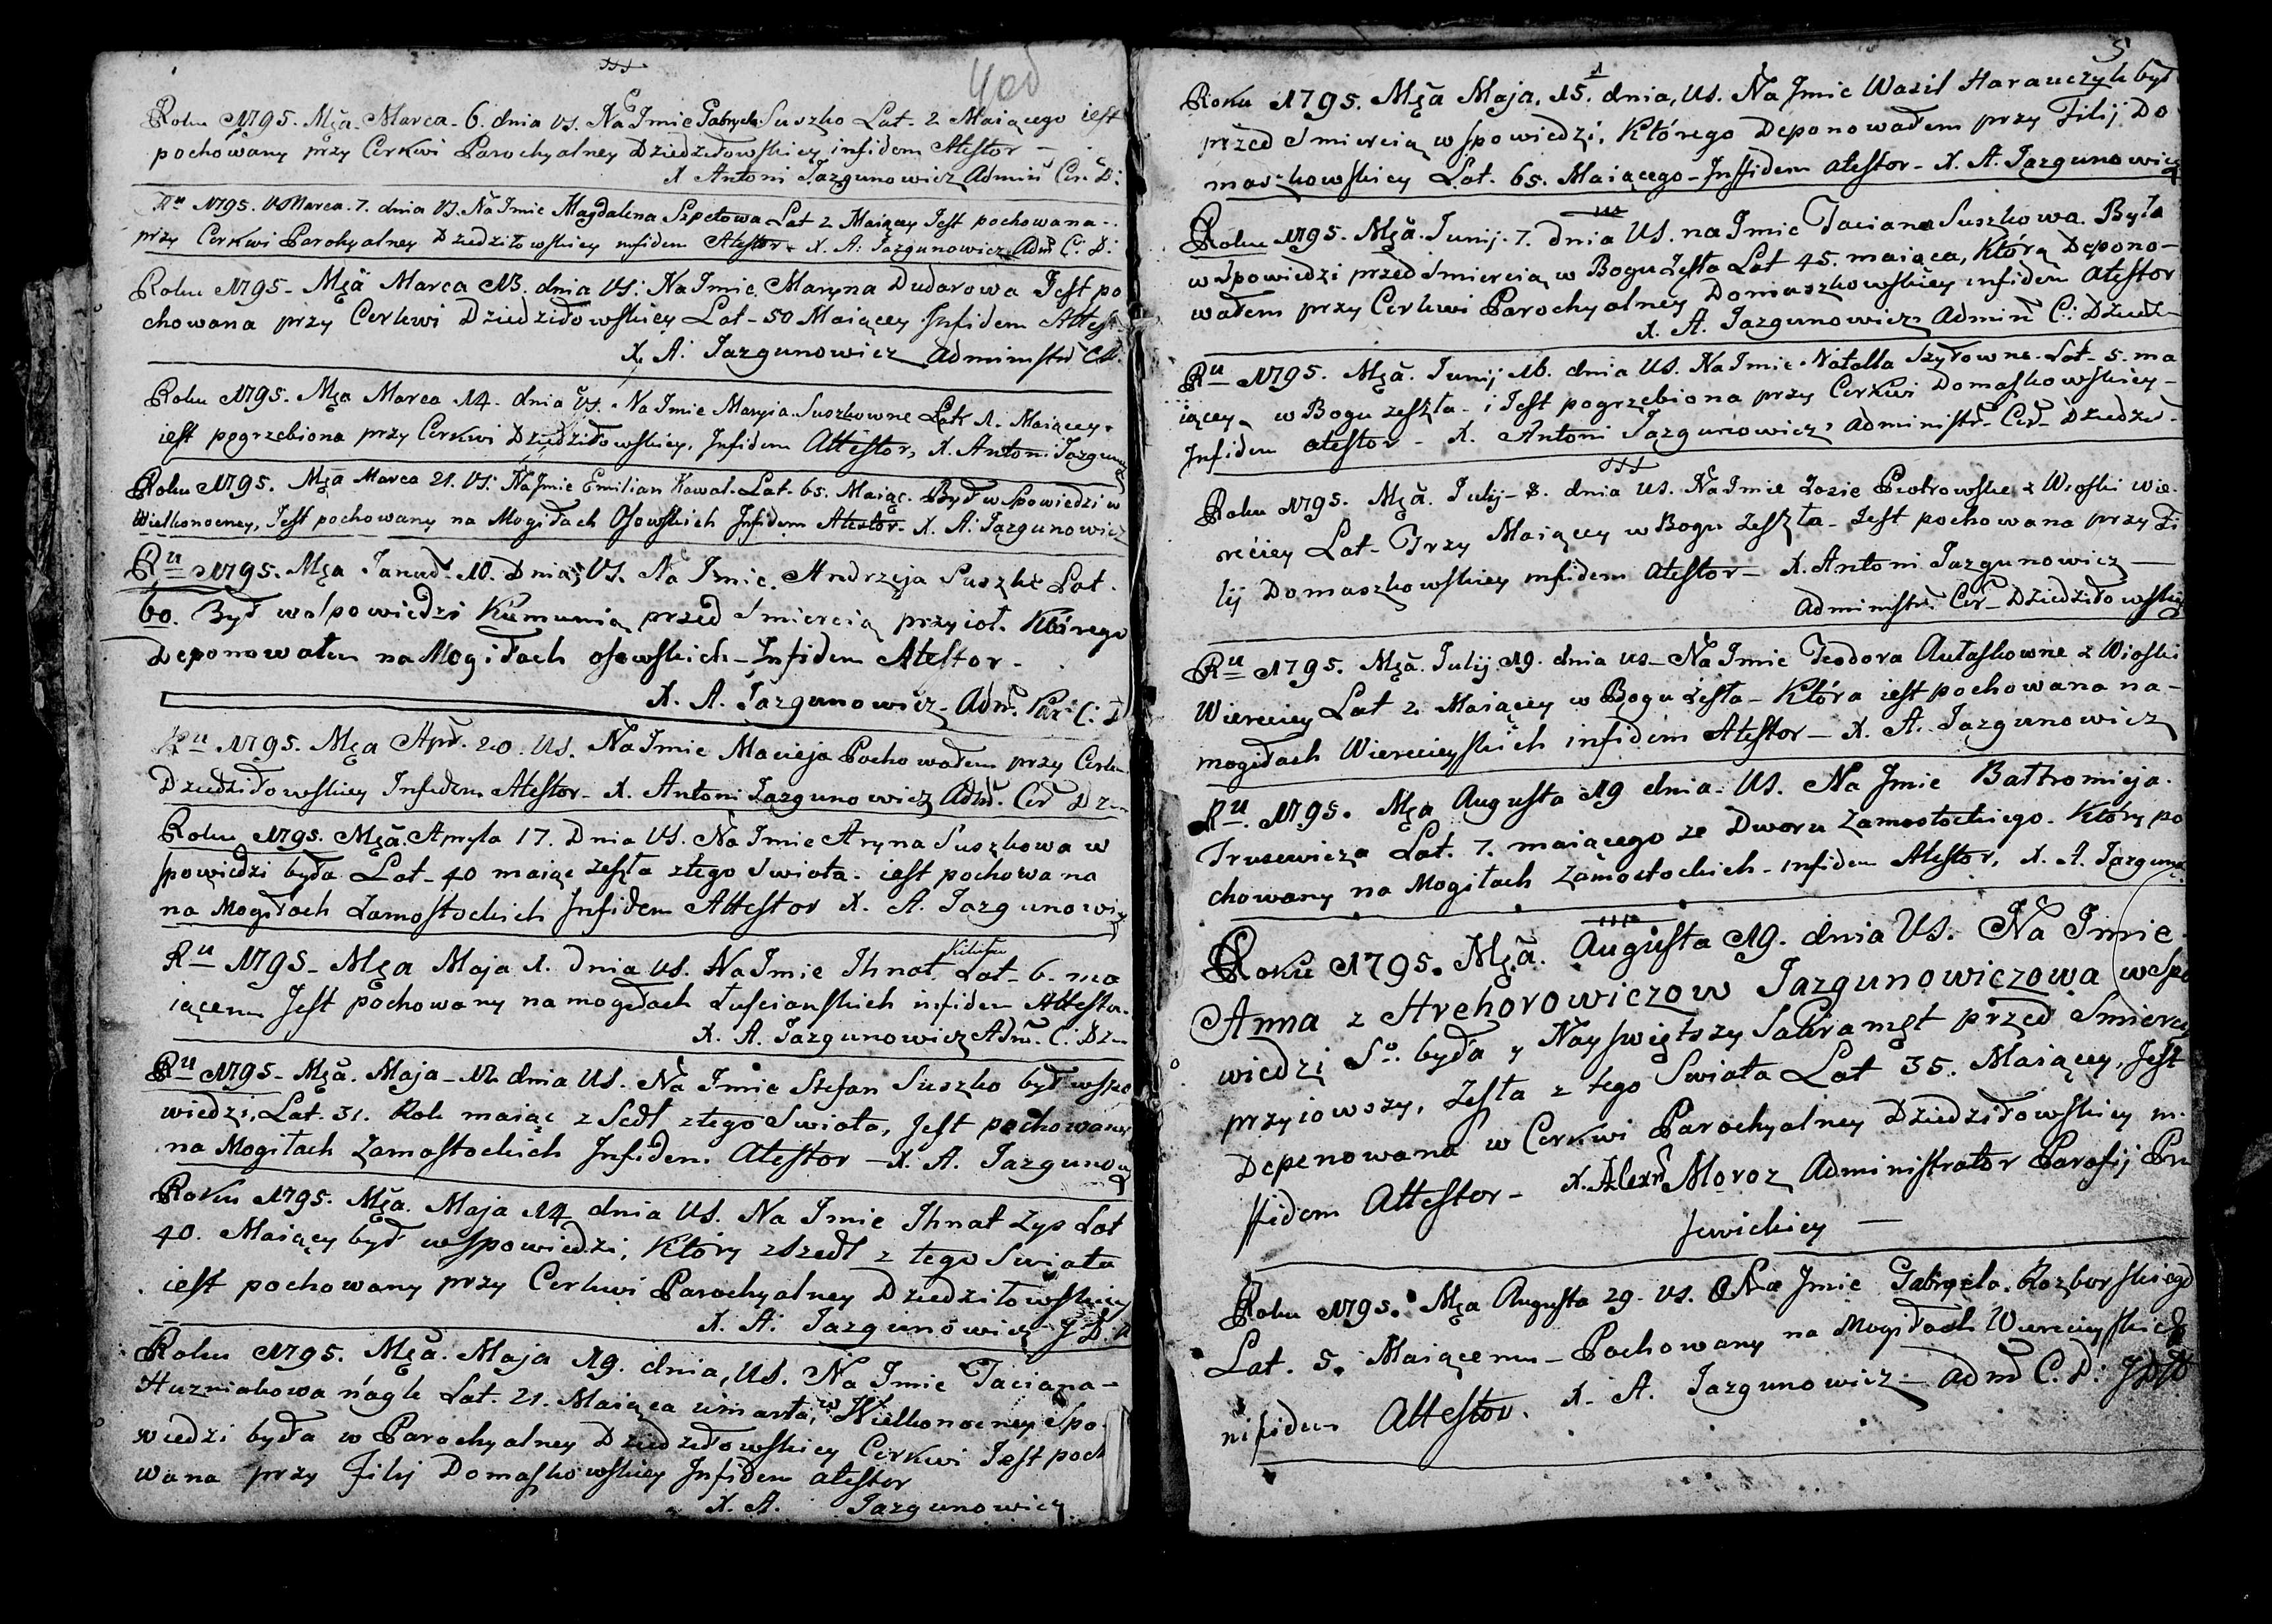 Roku 1795. Mca. Marca. 6. dnia VS. Na Imie Gabryela Suszko Lat. 2 Maiącego iest
pochowany przy Cerkwi Parochyalney Dziedziłowskiey infidem Atestor
X Antoni Jazgunowicz Admin Cer: D:
Ru 1795. Marca. 7. dnia VS. Na Imie Magdalena Szpetowa Lat 2 Maiącey Jest pochowana
przy Cerkwi Parohyalney Dziedziłowskiey infidem Atestor. X. A: Jazgunowicz Adm C: D:
Roku 1795. Mca Marca 13. dnia VS: Na Imie. Maryna Dudarowa Jest po
chowana przy Cerkwi Dziedziłowskiey Lat. 50 Maiącey Infidem Attest:
X. A: Jazgunowicz administr CD.
Roku 1795. Mca Marca 14. dnia VS. Na Imie Maryia Suszkowne Lat 1. Maiącey.
iest pogrzebiona przy Cerkwi Dziedziłowskiey. Infidem Attestor, X. Antoni Jazgunow
Roku 1795. Mca Marca 21. VS: Na Imie Emilian Kowal. Lat. 65. Maiąc. Był w Spowiedzi w
Wielkonocney, Jest pochowany na Mogiłach Osowskich Infidem Atestor. X. A: Jazgunowicz
Ru 1795. Mca Januar. 10. Dnia, VS. Na Imie. Andrzeja Suszke Lat.
60. Był w Spowiedzi Kumunią przed Smiercią przyioł. Którego
Deponowałem na Mogiłach osowskich Infidem Atestor.
X. A. Jazgunowicz. Adm. Par: C: D
Ru 1795. Mca Apr. 20. VS. Na Imie Macieja Pochowałem przy Cerkw
Dziedziłowskiey Infidem Atestor. X. Antoni Jazgunowicz Adm. Cer Dz
Roku 1795. Mca. Apryla 17. Dnia VS. Na Imie Aryna Suszkowa w
Spowiedzi była Lat. 40 maiąc zeszła ztego Swiata. iest pochowana
na Mogiłach Zamostockich Infidem Attestor X. A. Jazgunowicz
Ru 1795. Mca Maja 1. Dnia VS. Na Imie Ihnat Lat. 6. ma
iącem Jest pochowany na mogiłach Łuscianskich infidem Attestor.
X. A. Jazgunowicz Adm. C: Dz
Ru 1795. Mca. Maja 12 dnia VS. Na Imie Stefan Suszko był w Spo
wiedzi, Lat. 31. Rok maiąc z Sedł ztego Swiata, Jest pochowany
na Mogiłach Zamostockich Infidem Atestor X. A. Jazgunow
Roku 1795. Mca. Maja 14 dnia VS. Na Imie Ihnat Zys Lat
40. Maiący był w Spowiedzi, Który zszedł z tego Swiata
iest pochowany przy Cerkwi Parochyalney Dziedziłowskiey
X. A: Jazgunowicz
Roku 1795. Mca. Maja 19. dnia, VS. Na Imie Taciana
Huzniakowa nagle Lat. 21. Maiąca umarła, w Wielkonocney Spo
wiedzi była w Parochyalney Dziedziłowskiey Cerkwi Jest poch
wana przy Filij Domaskowskiey Infidem atestor
X. A. Jazgunowicz
5
Roku 1795. Mca Maja. 15. dnia, VS. Na Imie Wasil Harauczyk był
przed Smiercią w spowiedzi, Którego Deponowałem przy Filij Do
maszkowskiey Lat. 65. Maiącego Infidem atestor. X. A. Jazgunowicz
Roku 1795. Mca. Junij. 7. dnia VS. na Imie Taciana Suszkowa. Była
w Spowiedzi przed Smiercią w Bogu Zesła Lat 45. maiąca, Którą Depono-
wałem przy Cerkwi Parochyalney Domaszkowskiey infidem atestor
X. A. Jazgunowicz Admin C: Dziedz
Ru 1795. Mca. Junij 16. dnia VS. Na Imie Natalla Szyłowne. Lat. 5. ma
iącey w Bogu zeszła i Jest pogrzebiona przy Cerkwi Domaskowskiey
Infidem atestor. X. Antoni Jazgunowicz administr. Cer. Dziedził.
Roku 1795. Mca. Julij 8. dnia VS. Na Imie Zosie Piotrowske z Wioski Wie.
rećiey Lat. Trzy Maiącey w Bogu Zeszła. Jest pochowana przy Fi
lij Domaszkowskiey infidem atestor X. Antoni Jazgunowicz
administr. Cer. Dziedziłowskiey
Ru 1795. Mca. Julij. 19. dnia VS. Na Imie Teodora Aułaskowne z Wioski
Wiereciey Lat 2 Maiącey w Bogu Zesła Która iest pochowana na
mogiłach Wiereciyskich infidem Atestor X. A. Jazgunowicz
Ru. 1795. Mca Augusta 19 dnia. VS. Na Imie Bałtromieja.
Trusewicza Lat. 7. maiącego ze Dworu Zamostockiego. Który po
chowany na Mogiłach Zamostockich infidem Atestor, X. A. Jazgunow
Roku 1795. Mca. Augusta 19. dnia VS. Na Imie
Anna z Hrehorowiczow Jazgunowiczowa w Spo
wiedzi So. była y Nayswiętszy Sakramęt przed Smiercią
przyiowszy, Zesła z tego Swiata Lat 35. Maiącey, Jest
Deponowana w Cerkwi Parochyalney Dziedziłowskiey in
fidem Attestor X. Alexr Moroz Administrator Parafij Pru
sewickiey
Roku 1795. Mca Augusta 29. VS. Na Imie Gabryela. Rozborskiego
Lat. 5. Maiącemu Pochowany na Mogiłach Wiereciyskich
infidem Attestor. X. A. Jazgunowicz adm C. D: